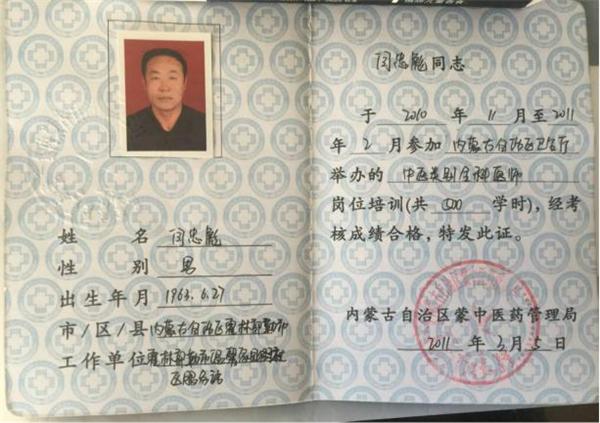 姓 名 闫忠彪
性 别 男
出生年月 1963.6.27
市/区/县 内蒙古自治区霍林郭勒市
工作单位 霍林郭勒市
闫忠彪 同志
于 2010 年 11 月至 2011
年 2 月参加 内蒙古自治区卫生厅
举办的 中医类别全科医师
岗位培训(共 500 学时),经考
核成绩合格,特发此证。
内蒙古自治区蒙中医药管理局
2011 年 3 月 5 日